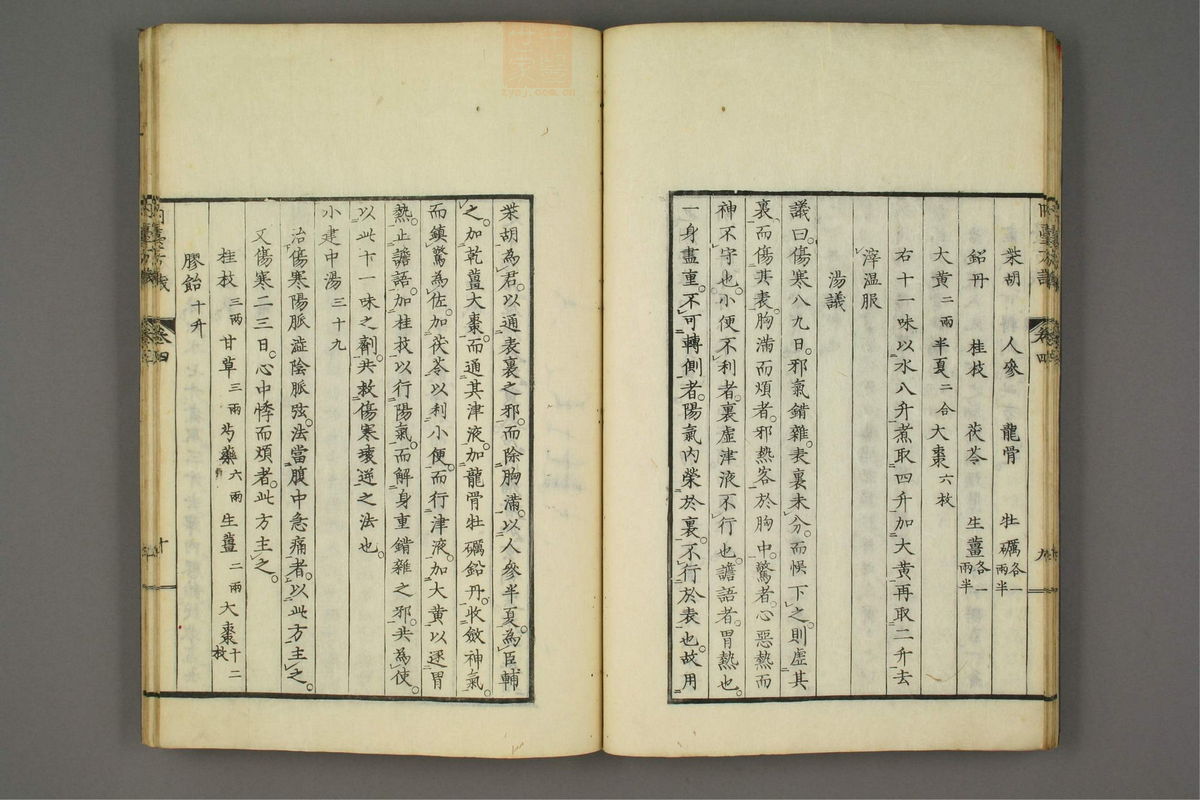 柴胡 人參 龍骨 牡礪各一兩半
鉛丹 桂枝 茯苓 生薑各一兩半
大黃二兩半夏二合大棗六枚
右十一味以水八升煮取四升加大黃再取二升去
滓温服
湯議
議曰傷寒八九日邪氣錯雜表裏未分而悞下之則虛其
裏而傷其表胸滿而煩者邪熱客於胸中驚者心惡熱而
神不守也小便不利者裏虛津液不行也譫語者胃熱也
一身盡重不可轉側者陽氣內榮於裏不行於表也故用
卷四
柴胡為君以通表裏之邪而除胸滿以人參半夏為臣輔
之加乾薑大棗而通其津液加龍骨牡礪鉛丹收斂神氣
而鎮驚為佐加茯苓以利小便而行津液加大黃以逐胃
熱止譫語加桂枝以行陽氣而解身重錯雜之邪共為使
以此十一味之劑共救傷寒壞逆之法也
小建中湯三十九
治傷寒陽脈澁陰脈弦法當腹中急痛者以此方主之
又傷寒二三日心中悸而煩者此方主之
桂枝三兩 甘草三兩芍藥六兩 生薑二兩大棗十二枚
膠飴十升
卷四
十
zyyj.com.cn